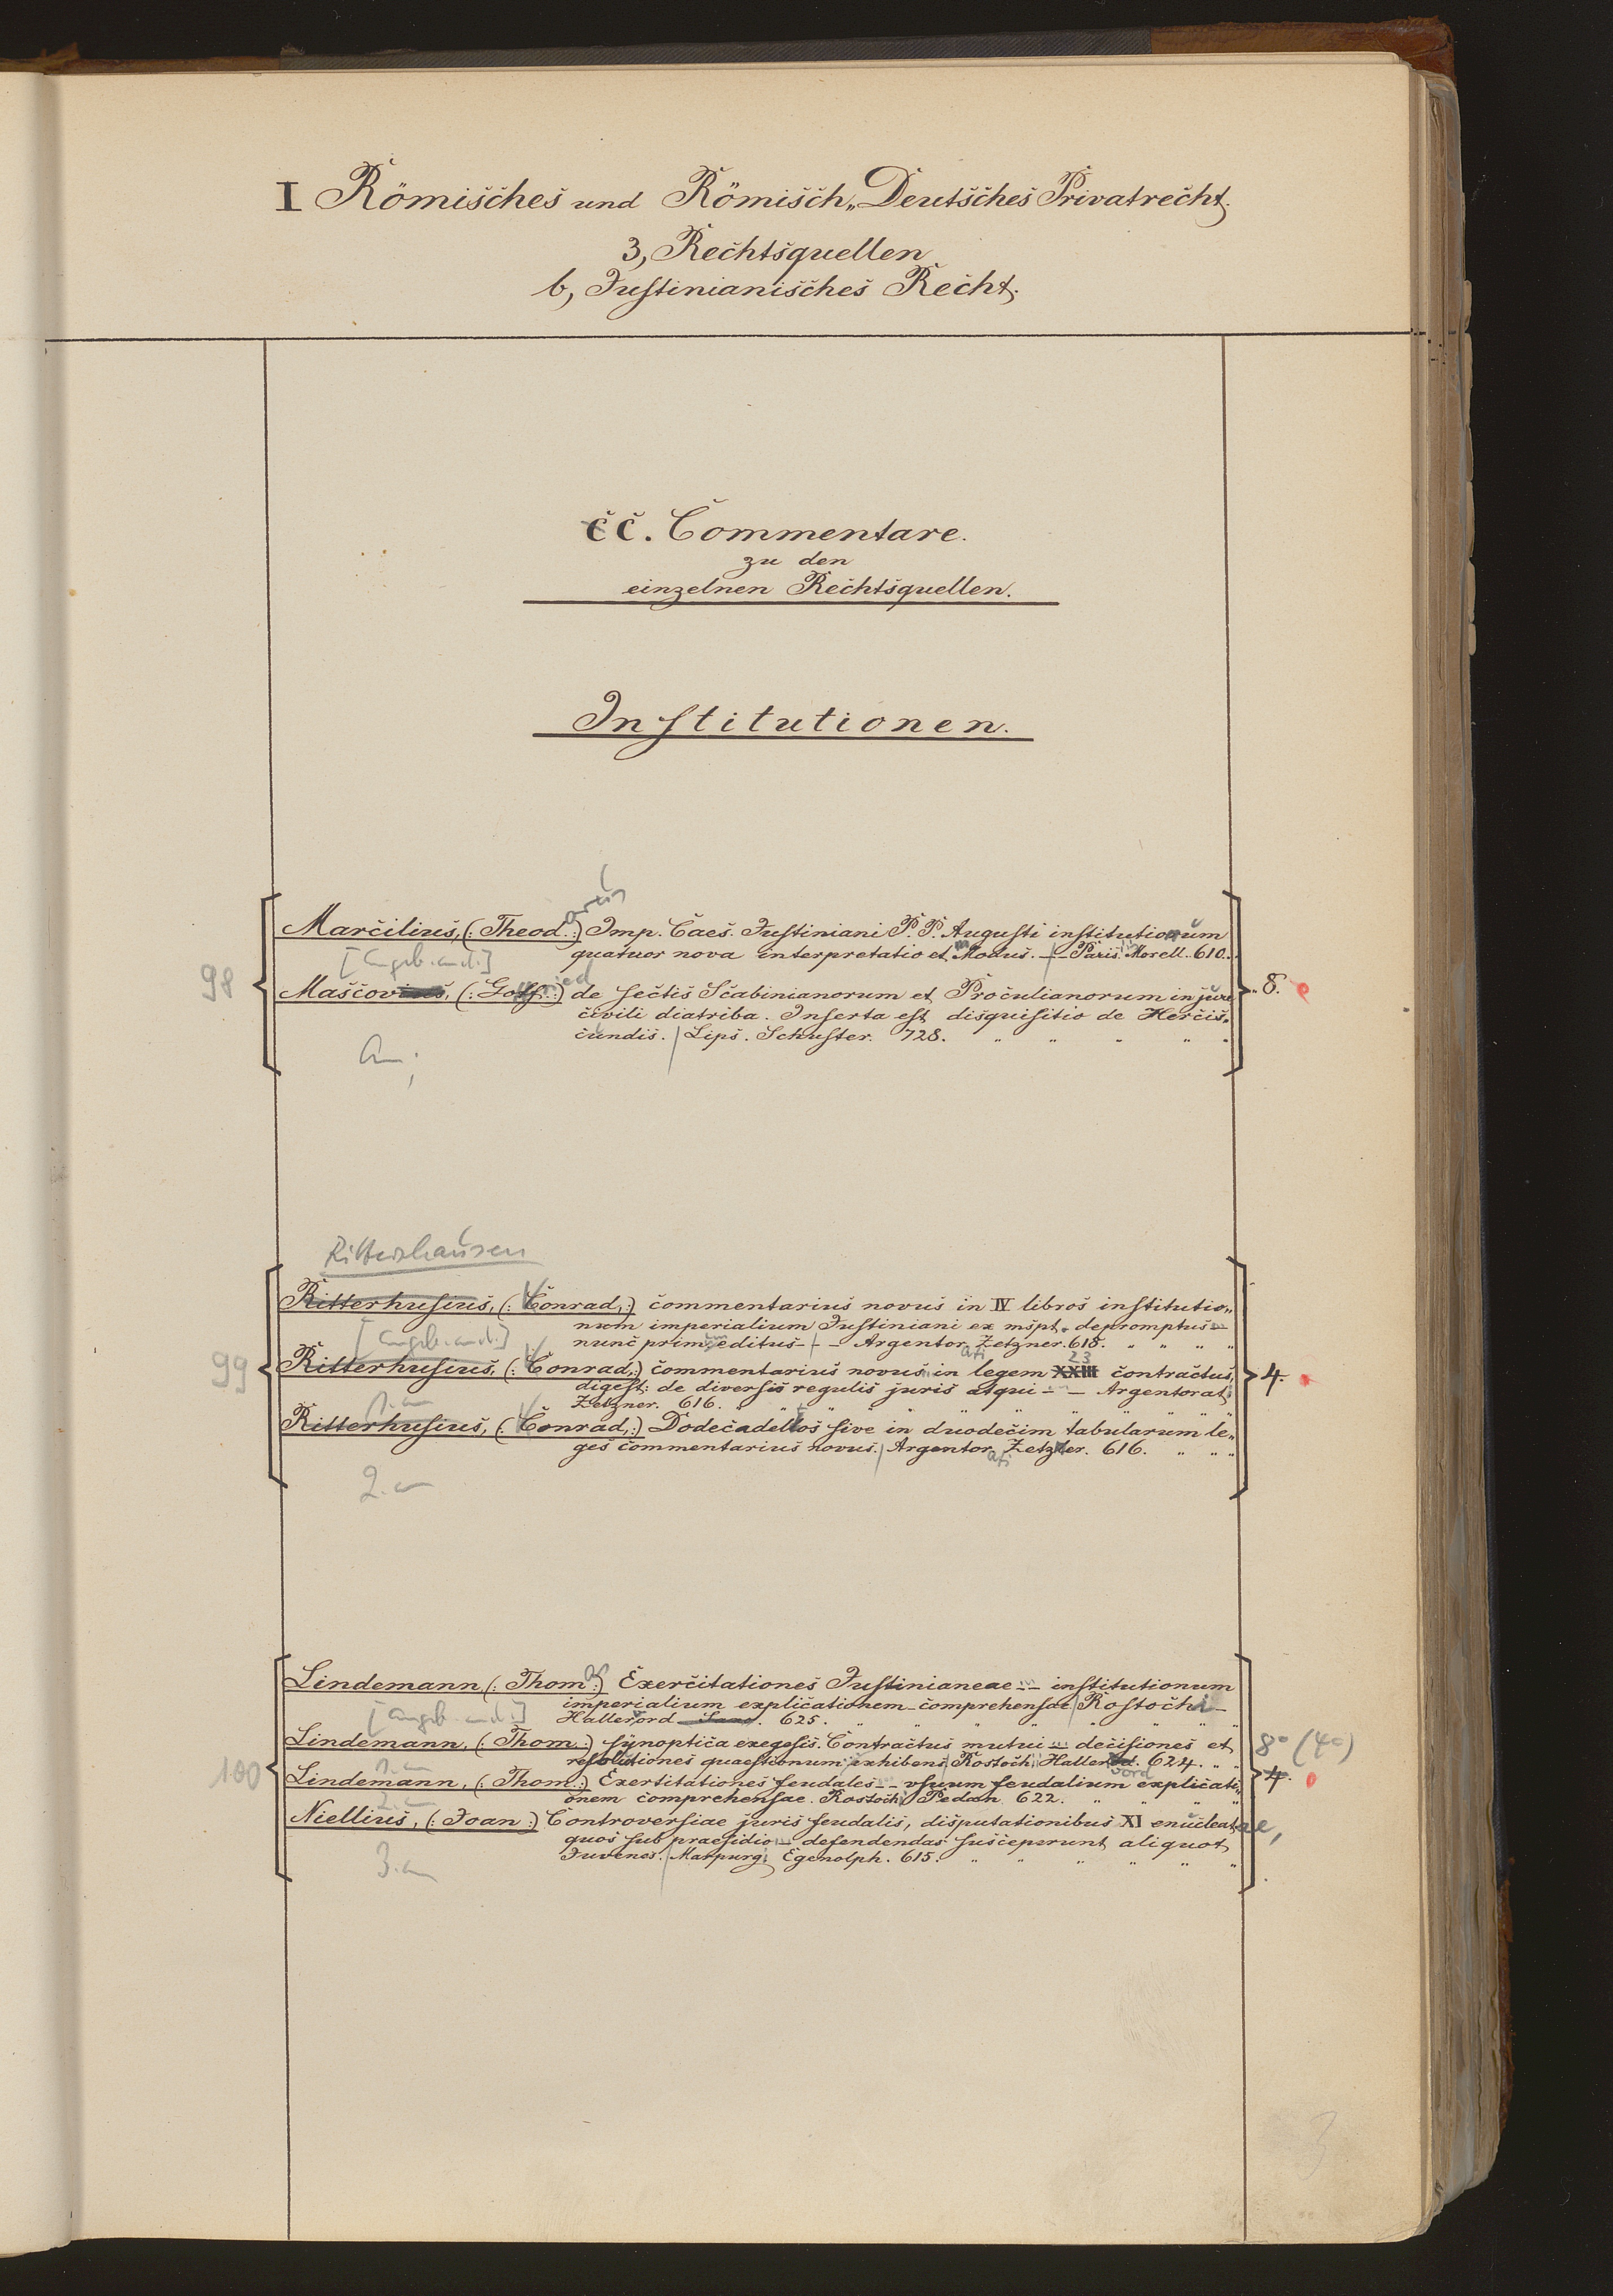 I Römisches und Römisch„Deutsches Privatrecht.
3, Rechtsquellen
b, Justinianisches Recht.
cc. Commentare.
zu den
einzelnen Rechtsquellen.
Institutionen.
98
Marcilius, (: Theod. :) Imp. Caes. Justiniani P. P. Augusti institutionum
quatuor nova interpretatio et Modus. — Paris. Morell. 610.
[angeb. and.]
Mascovius, (: Gotf. :) de sectis Scabinianorum et Proculianorum in jure
civili diatriba. Inserta est disquisitio de Hercis„
cundis. Lips. Schuster. 728.
8.
99
Rittershausen
Ritterhusius, (: Conrad, :) commentarius novus in IV libros institutio„
num imperialium Justiniani ex mspt. depromptus
nunc primum editus — Argentor. Zetzner. 618.
[angeb. and.]
Ritterhusius, (: Conrad, :) commentarius novus in legem XXIII 23 contractus,
digest: de diversis regulis juris atqui — Argentorati
Zetzner. 616.
Ritterhusius, (: Conrad, :) Dodecadeltos sive in duodecim tabularum le„
ges commentarius novus. Argentorati Zetzner. 616.
4.
100
Lindemann, (: Thom :) Exercitationes Justinianeae — institutionum
imperialium explicationem comprehensae Rostochi
Hallervord. 625.
[angeb. and.]
Lindemann, (: Thom. :) synoptica exegesis. Contractus mutui — decisiones et
resolutiones quaestionum exhibens Rostochi Hallervord. 624.
Lindemann, (: Thom. :) Exertitationes feudales — usuum feudalium explicati„
onem comprehensae. Rostochi Pedan. 622.
Niellius, (: Joan :) Controversiae juris feudalis, disputationibus XI enucleatae,
quos sub praesidio — defendendas susceperunt aliquot
Juvenes. Marpurgi Egenolph. 615.
8° (4°)
4.
3